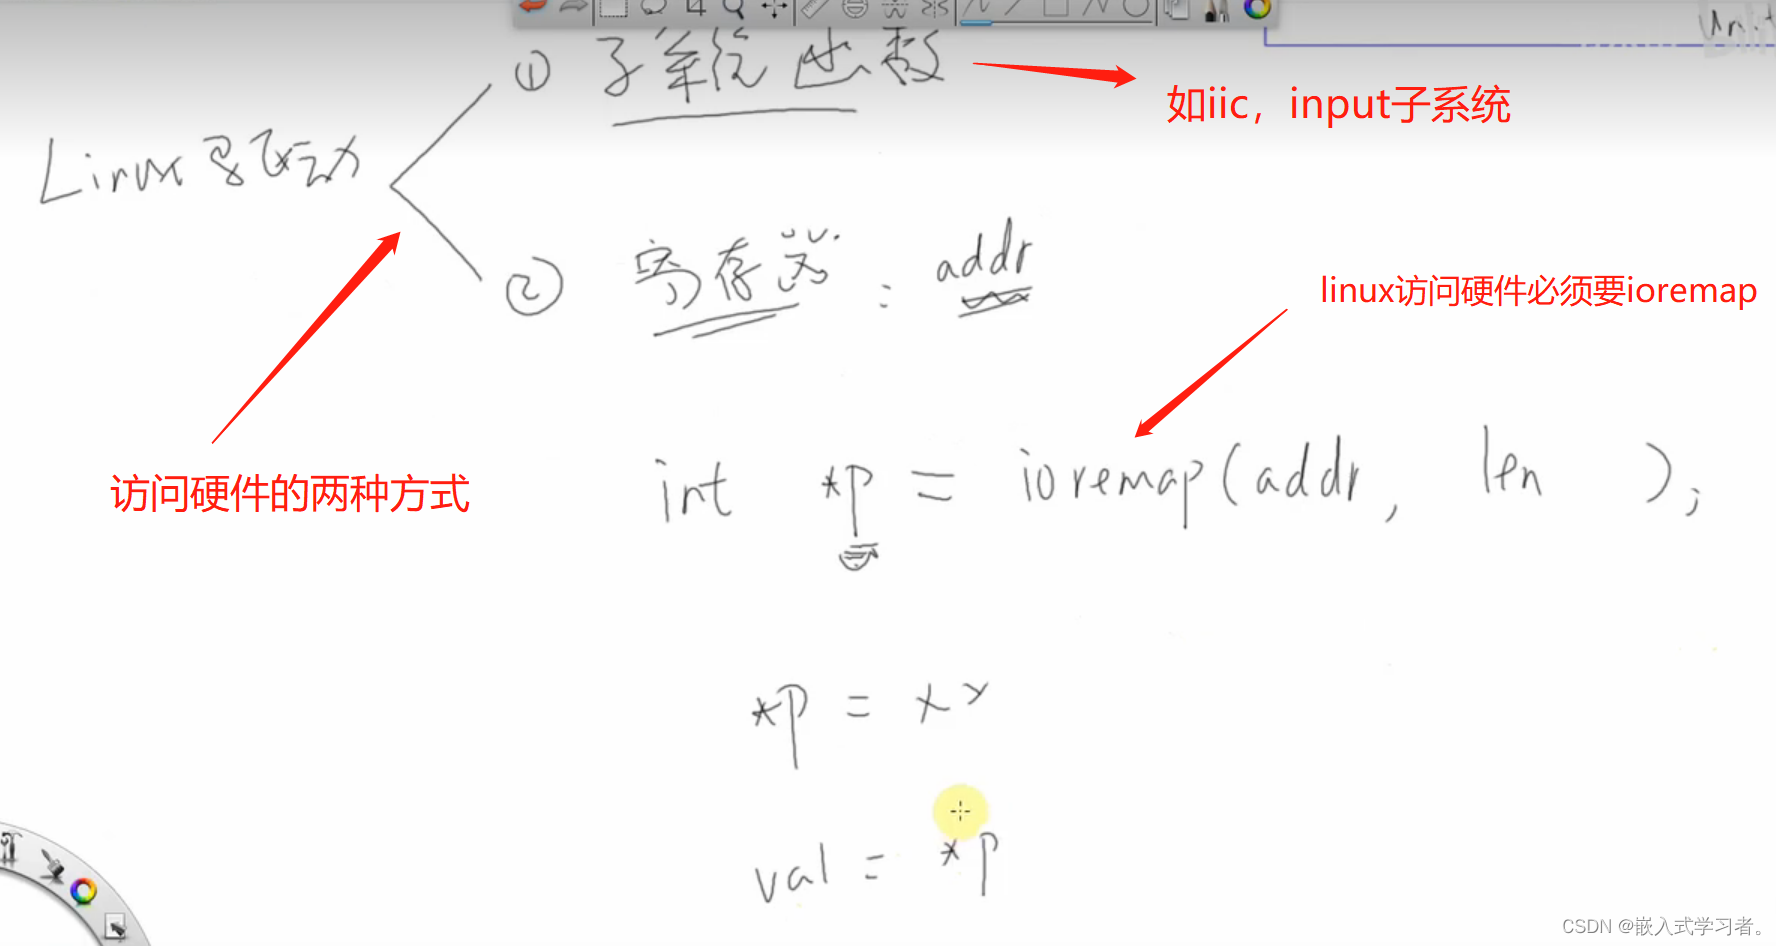 ① 子系统函数
如iic，input子系统
Linux驱动
② 寄存器：addr
linux访问硬件必须要ioremap
访问硬件的两种方式
int *p = ioremap(addr, len );
*p = xx
val = *p
CSDN @嵌入式学习者。